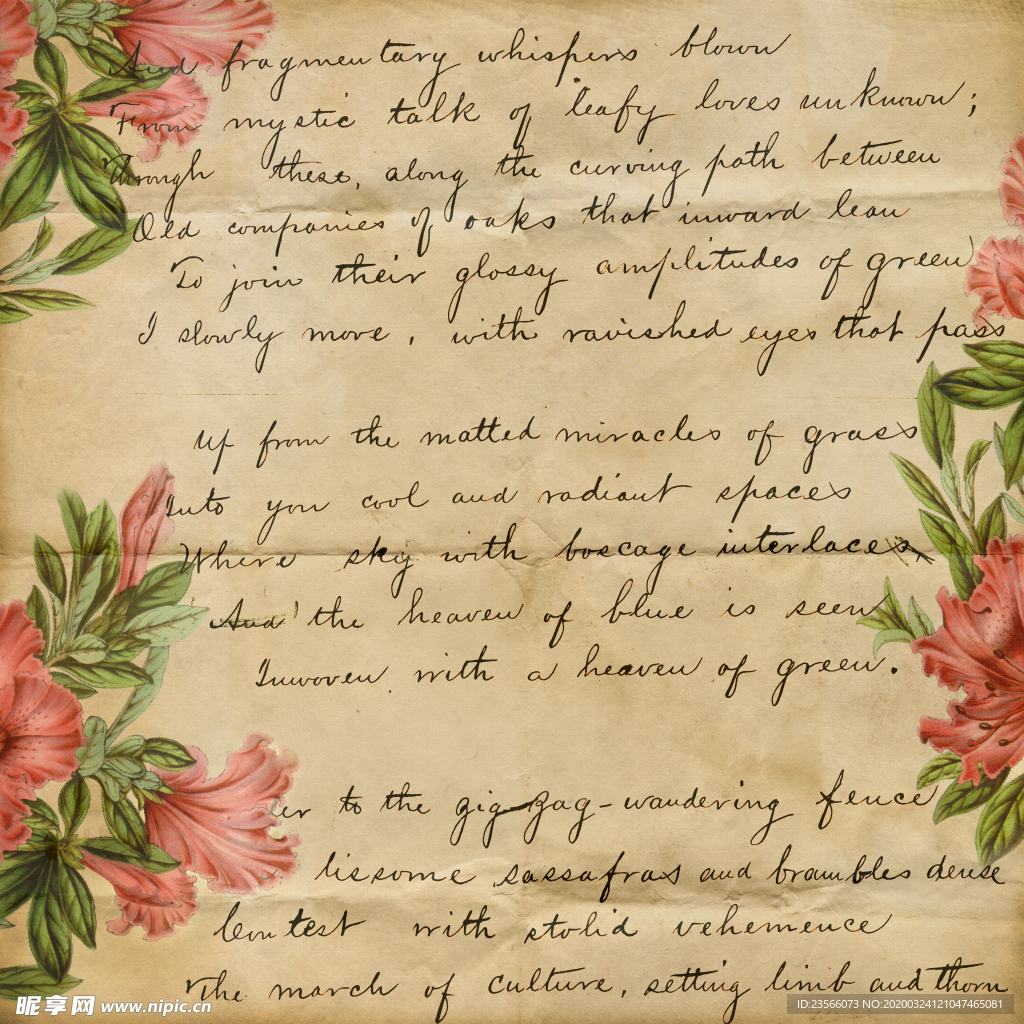 And fragmentary whispers blown
From mystic talk of leafy loves unknown;
Through these, along the curving path between
Old companies of oaks that inward lean
To join their glossy amplitudes of green
I slowly move, with ravished eyes that pass
Up from the matted miracles of grass
Into you cool and radiant spaces
Where sky with boscage interlaces
And the heaven of blue is seen
Inwoven with a heaven of green.
to the zig-zag-wandering fence
lissome sassafras and brambles dense
Contest with stolid vehemence
The march of culture, setting limb and thorn
昵享网 www.nipic.cn
ID:23566073 NO:20200324121047465081